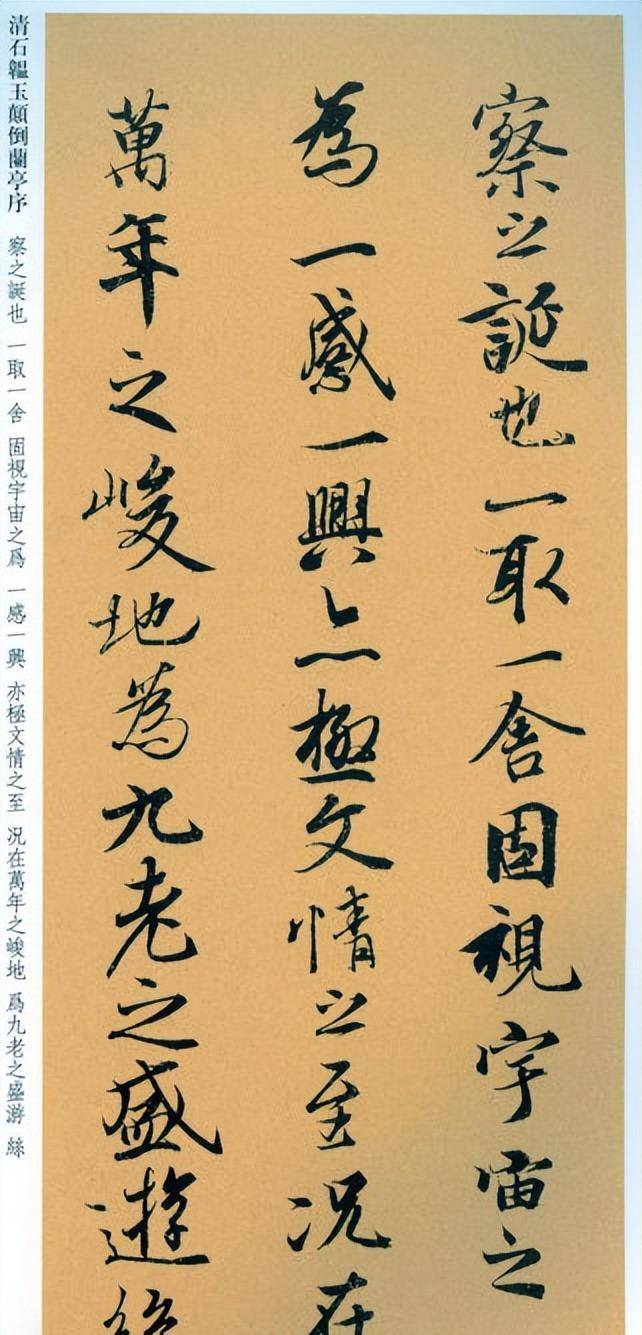 察之誕也一取一舍固視宇宙之
為一感一興亦極文情之至況在
萬年之峻地為九老之盛遊絲
清石韞玉顛倒蘭亭序 察之誕也 一取一舍 固視宇宙之爲 一感一興 亦極文情之至 况在萬年之峻地 爲九老之盛游 絲